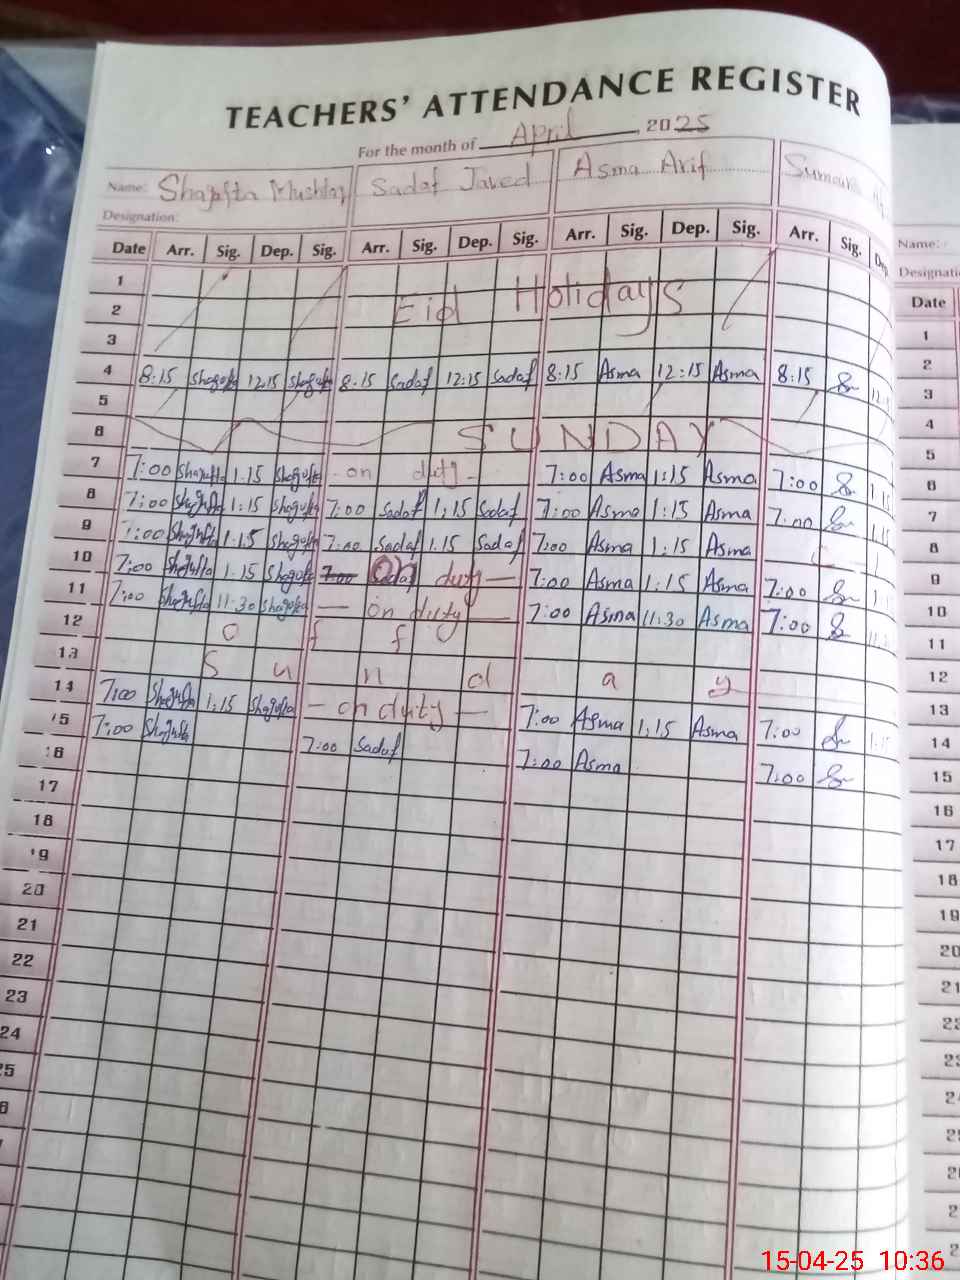 TEACHERS' ATTENDANCE REGISTER
For the month of April, 2025
Name: Shagufta Mushtaq Sadaf Javed Asma Arif
Designation:
Date Arr. Sig. Dep. Sig. Arr. Sig. Dep. Sig. Arr. Sig. Dep. Sig. Arr. Sig. Dep.
1
2 Eid Holidays
3
4 8:15 Shagufta 12:15 Shagufta 8:15 Sadaf 12:15 Sadaf 8:15 Asma 12:15 Asma 8:15
5
6 SUNDAY
7 7:00 Shagufta 1:15 Shagufta - on duty - 7:00 Asma 1:15 Asma 7:00
8 7:00 Shagufta 1:15 Shagufta 7:00 Sadaf 1:15 Sadaf 7:00 Asma 1:15 Asma 7:00
9 7:00 Shagufta 1:15 Shagufta 7:00 Sadaf 1:15 Sadaf 7:00 Asma 1:15 Asma C
10 7:00 Shagufta 1:15 Shagufta 7:00 Sadaf duty — 7:00 Asma 1:15 Asma 7:00
11 7:00 Shagufta 11:30 Shagufta — on duty — 7:00 Asma 11:30 Asma 7:00
12 o f f
13 S u n d a y
14 7:00 Shagufta 1:15 Shagufta - on duty — 7:00 Asma 1:15 Asma 7:00
15 7:00 Shagufta 7:00 Sadaf 7:00 Asma 7:00
16
17
18
19
20
21
22
23
24
25
Name:
Date
1
2
3
4
5
6
7
8
9
10
11
12
13
14
15
16
17
18
19
20
21
15-04-25 10:36